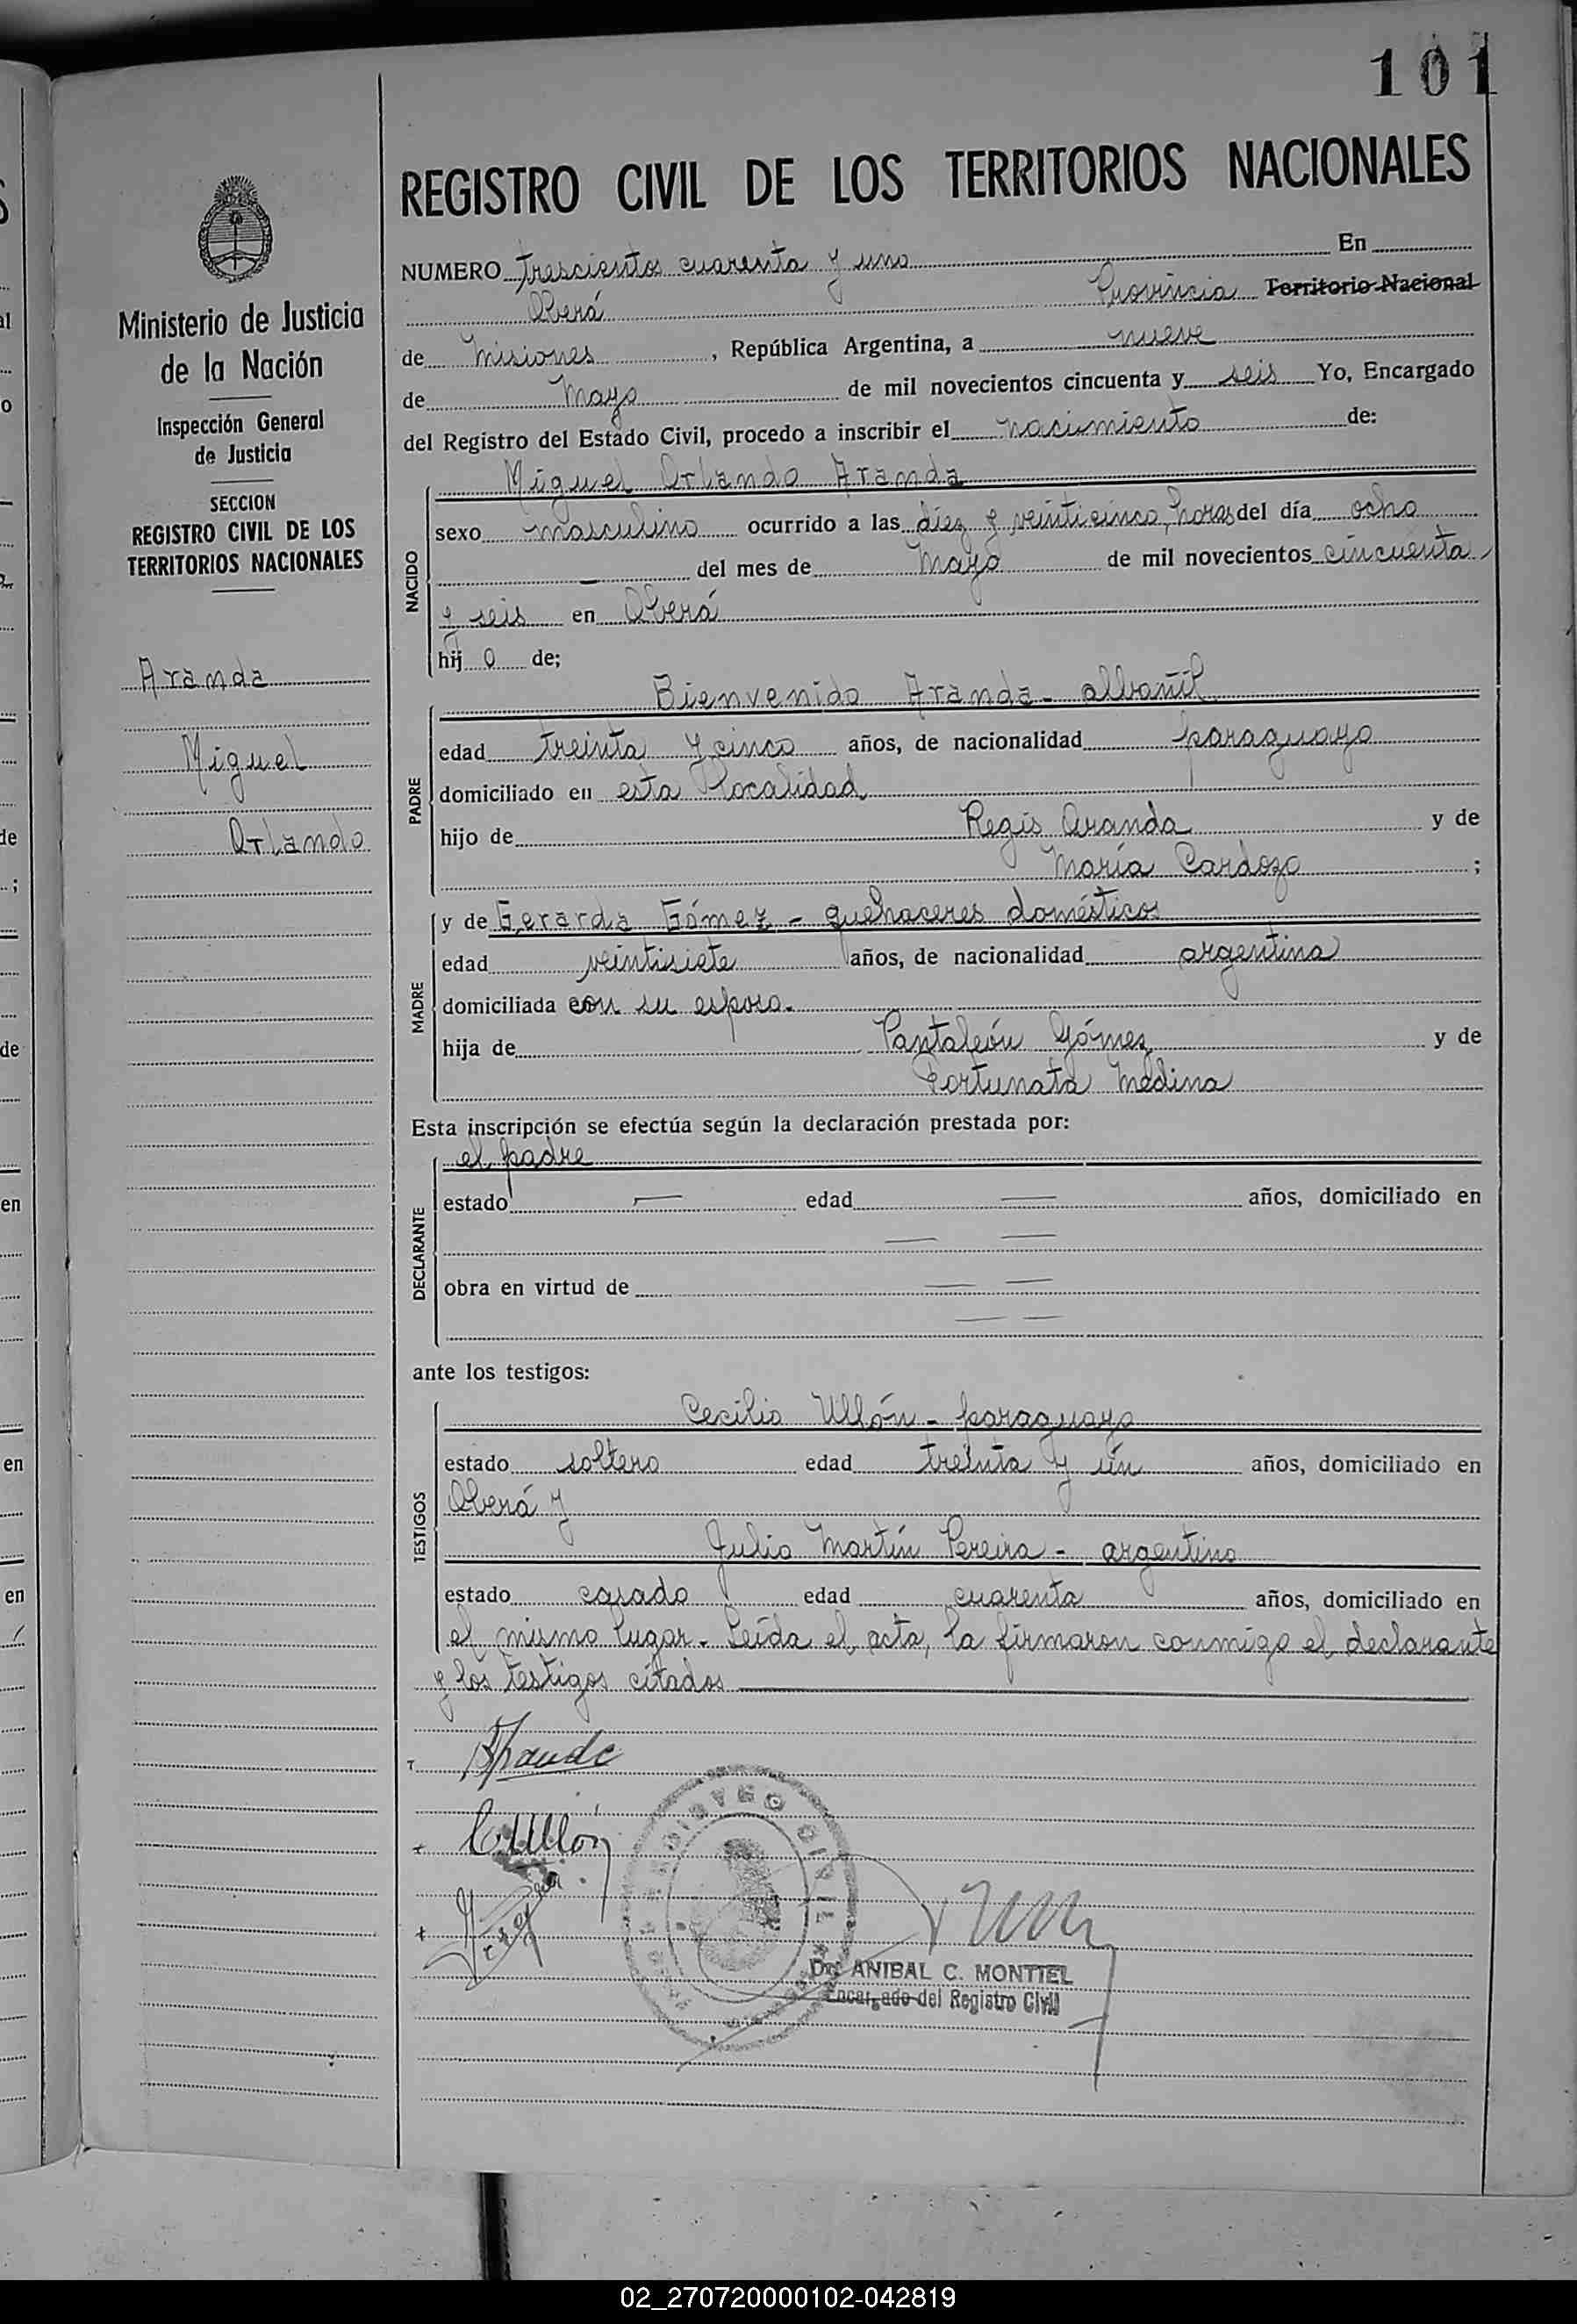 101
REGISTRO CIVIL DE LOS TERRITORIOS NACIONALES
Ministerio de Justicia
de la Nación
Inspección General
de Justicia
SECCION
REGISTRO CIVIL DE LOS
TERRITORIOS NACIONALES
Aranda
Miguel
Orlando
NUMERO trescientos cuarenta y uno En
Oberá Provincia Territorio Nacional
de Misiones, República Argentina, a nueve
de Mayo de mil novecientos cincuenta y seis Yo, Encargado
del Registro del Estado Civil, procedo a inscribir el nacimiento de:
NACIDO
Miguel Orlando Aranda
sexo masculino ocurrido a las diez y veinticinco horas del día ocho
— del mes de Mayo de mil novecientos cincuenta
y seis en Oberá
hijo de;
PADRE
Bienvenido Aranda - albañil
edad treinta y cinco años, de nacionalidad paraguayo
domiciliado en esta localidad
hijo de Regis Aranda y de
María Cardozo ;
MADRE
y de Gerarda Gómez - quehaceres domésticos
edad veintisiete años, de nacionalidad argentina
domiciliada con su esposo.
hija de Pantaleón Gómez y de
Fortunata Medina
Esta inscripción se efectúa según la declaración prestada por:
DECLARANTE
el padre
estado — edad — años, domiciliado en
— —
obra en virtud de — —
— —
ante los testigos:
TESTIGOS
Cecilio Ullón - paraguayo
estado soltero edad treinta y un años, domiciliado en
Oberá y
Julio Martín Pereira - argentino
estado casado edad cuarenta años, domiciliado en
el mismo lugar - Leída el acta, la firmaron conmigo el declarante
y los testigos citados
C. Ullón
REGISTRO CIVIL
Dr. ANIBAL C. MONTIEL
Encargado del Registro Civil
02_270720000102-042819